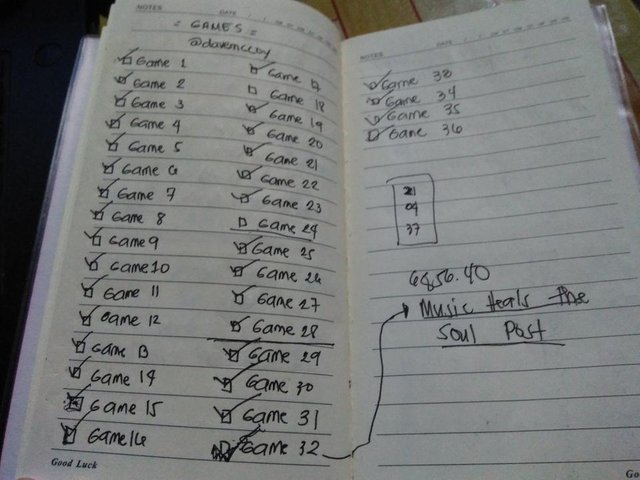 NOTES DATE
= GAMES =
@davemccoy
Game 1
Game 2
Game 3
Game 4
Game 5
Game 6
Game 7
Game 8
Game 9
Game 10
Game 11
Game 12
Game 13
Game 14
Game 15
Game 16
Good Luck
Game 17
Game 18
Game 19
Game 20
Game 21
Game 22
Game 23
Game 24
Game 25
Game 26
Game 27
Game 28
Game 29
Game 30
Game 31
Game 32
NOTES DATE
Game 33
Game 34
Game 35
Game 36
21
09
37
6856.40
Music Heals The
Soul Post
Go